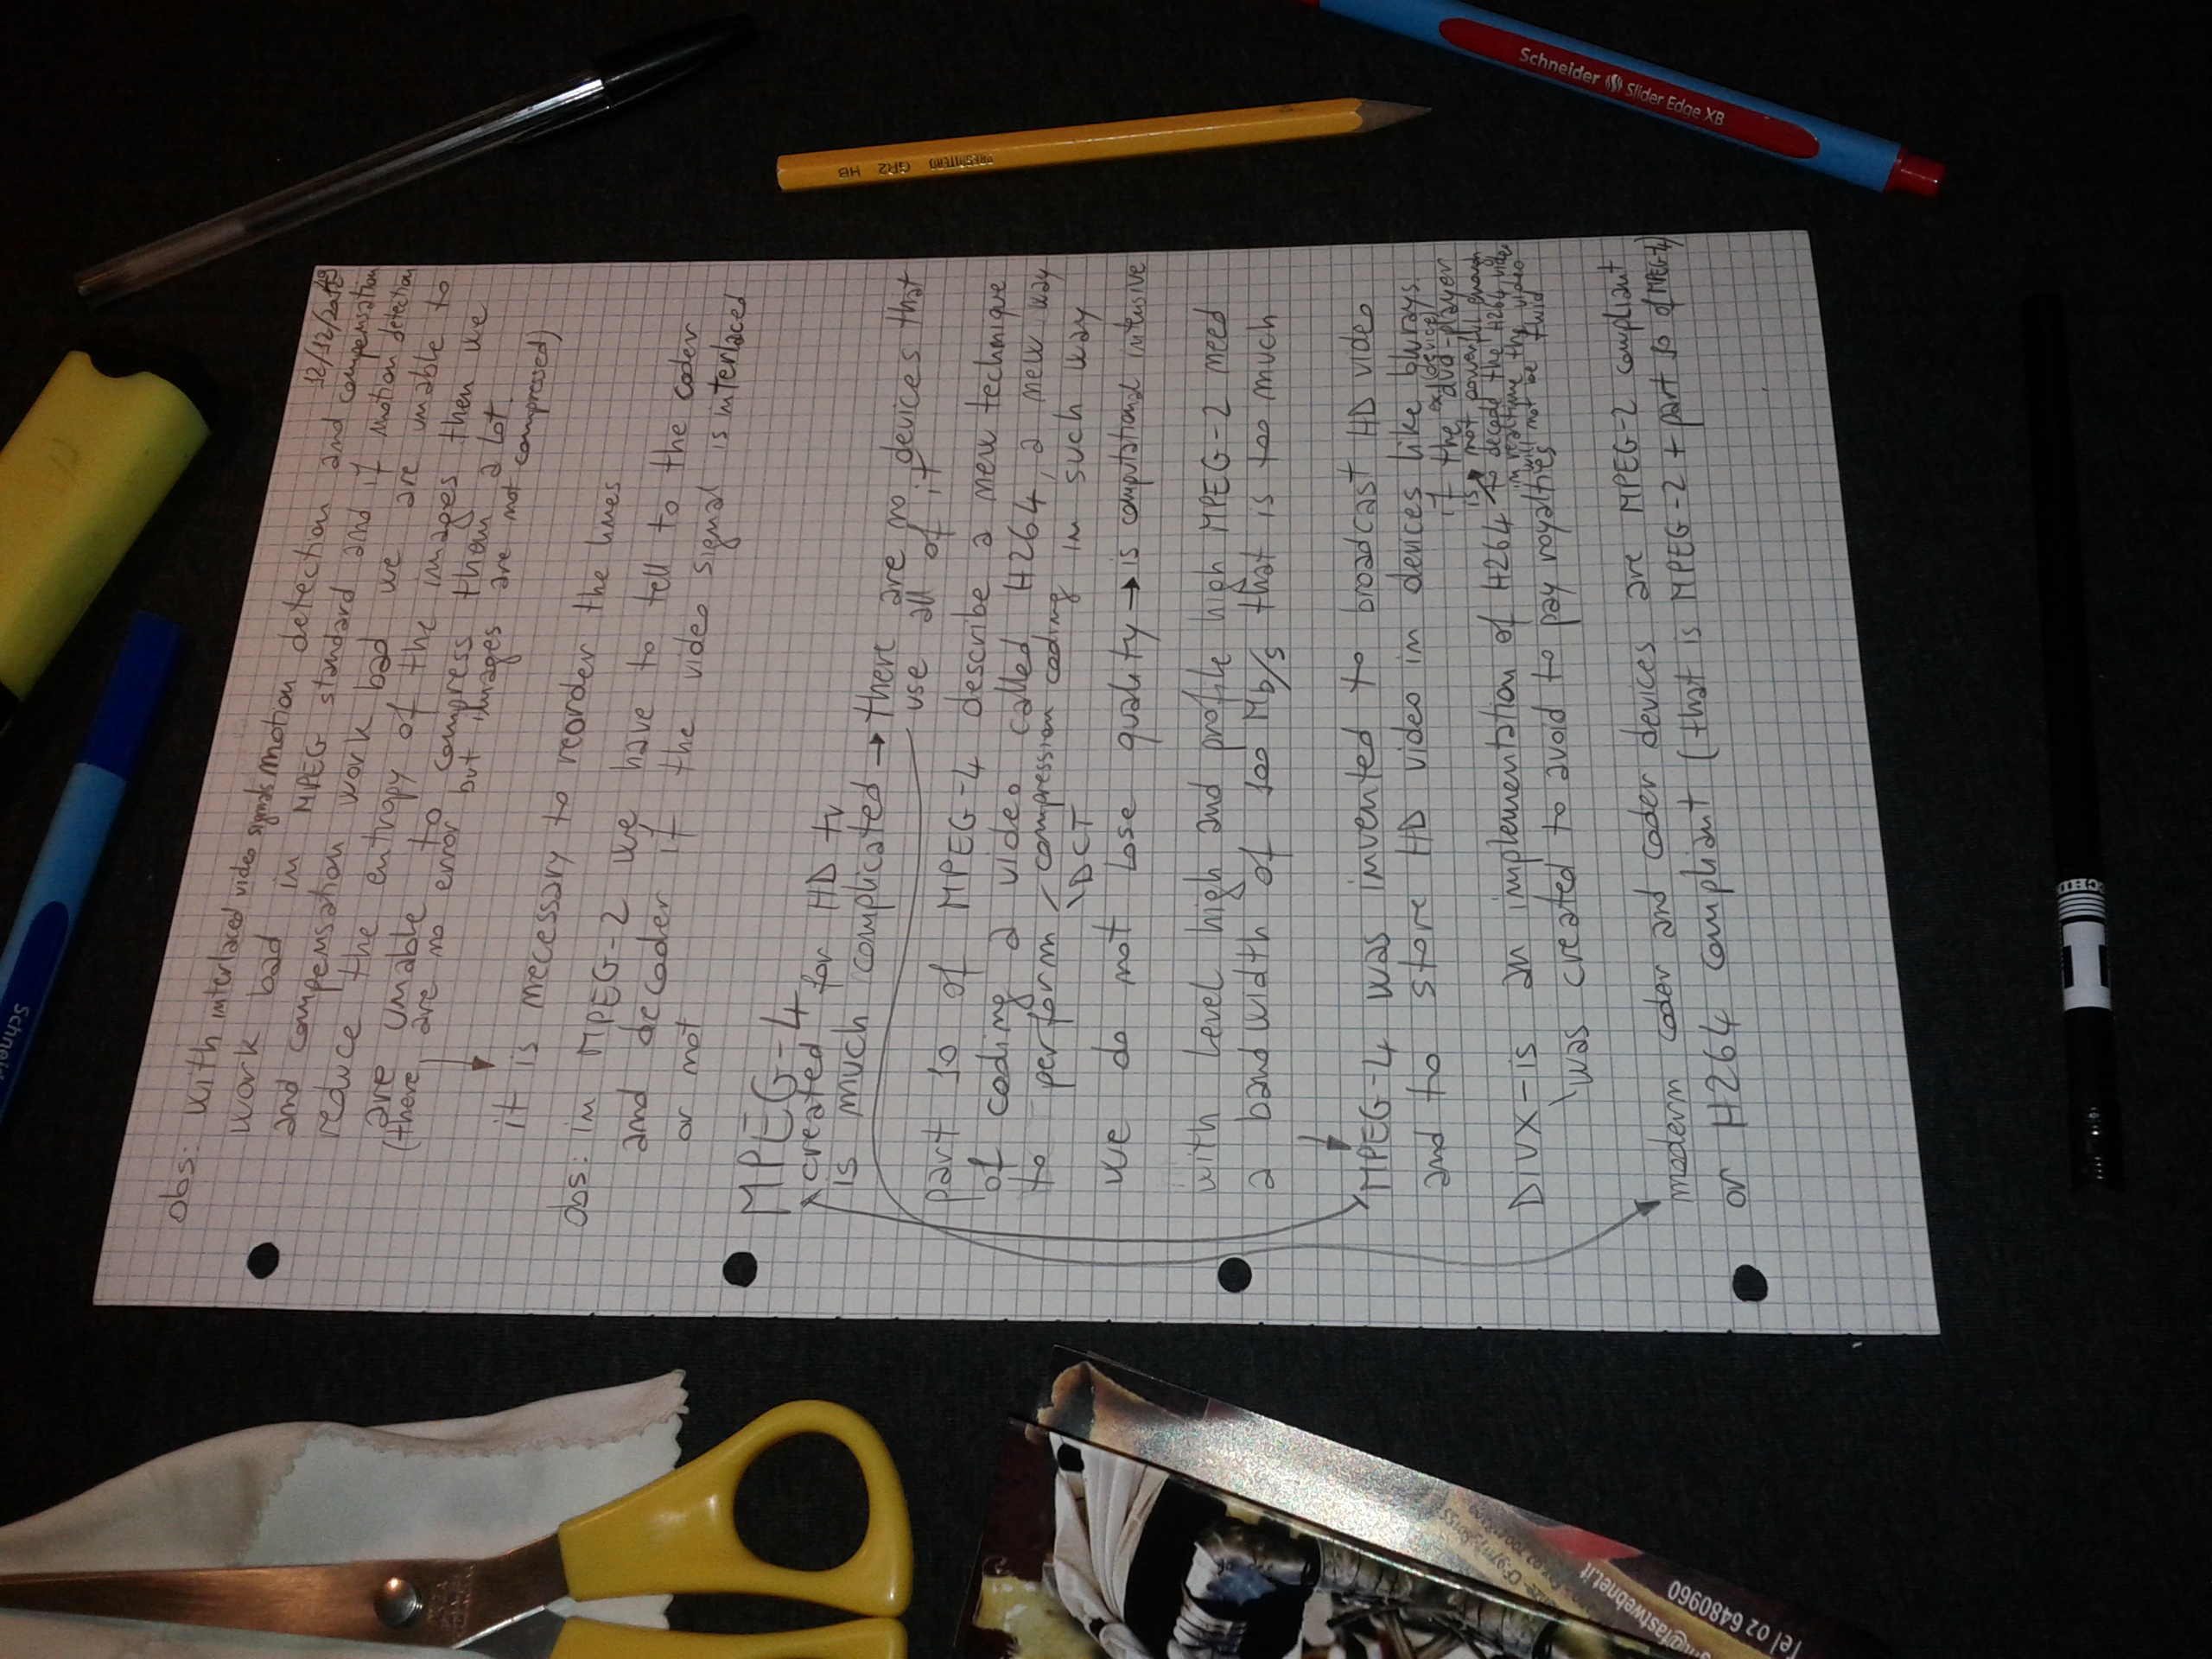 12/12/2012
obs: with interlaced video signals motion detection and compensation
work bad in MPEG standard and if motion detection
and compensation work bad we are unable to
reduce the entropy of the images then we
are unable to compress them a lot.
(there are no error but images are not compressed)
it is necessary to reorder the lines
obs: in MPEG-2 we have to tell to the coder
and decoder if the video signal is interlaced
or not
MPEG-4
created for HD tv
is much complicated → there are no devices that
use all of it
part 10 of MPEG-4 describe a new technique
of coding a video called H264, a new way
to perform compression coding in such way
DCT
we do not lose quality → is computational intensive
with level high and profile high MPEG-2 need
a bandwidth of 100 Mb/s that is too much
MPEG-4 was invented to broadcast HD video
and to store HD video in devices like blurays.
DivX - is an implementation of H264
was created to avoid to pay royalties
if the dvd-player
ex (device)
is not powerful enough
to decode the H264 video
in realtime the video
will not be fluid
modern coder and coder devices are MPEG-2 compliant
or H264 compliant (that is MPEG-2 + part 10 of MPEG-4)
Schneider Slider Edge XB
PRESBITERO GR2 HB
Schnei
CHD
@fastwebnet.it
Tel 02 6480960